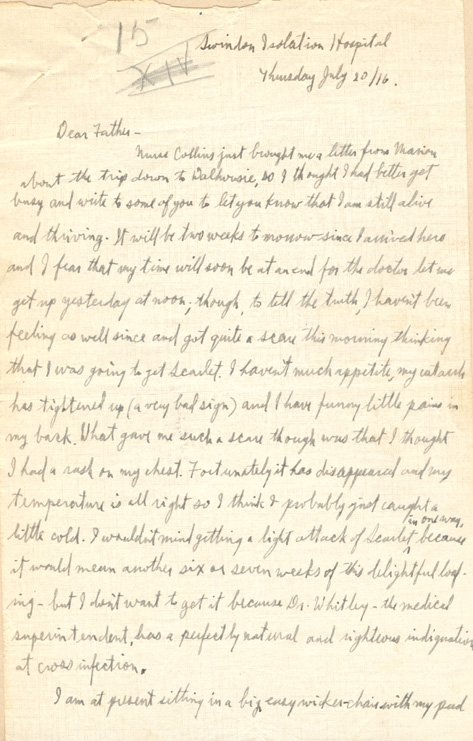 15
XIV
Swindon Isolation Hospital
Thursday July 20/16.
Dear Father-
Nurse Collins just brought me a letter from Marion
about the trip down to Dalhousie, so I thought I had better get
busy and write to some of you to let you know that I am still alive
and thriving. It will be two weeks to morrow since I arrived here
and I fear that my time will soon be at an end for the doctor let me
get up yesterday at noon; though, to tell the truth, I haven't been
feeling as well since and got quite a scare this morning thinking
that I was going to get Scarlet. I haven't much appetite, my catarrh
has tightened up (a very bad sign) and I have funny little pains in
my back. What gave me such a scare though was that I thought
I had a rash on my chest. Fortunately it has disappeared and my
temperature is all right so I think I probably just caught a
little cold. I wouldn't mind getting a light attack of Scarlet, in one way, because
it would mean another six or seven weeks of this delightful loaf-
ing - but I don't want to get it because Dr. Whitley - the medical
superintendent, has a perfectly natural and righteous indignation
at cross infection.
I am at present sitting in a big easy wicker-chair with my pad